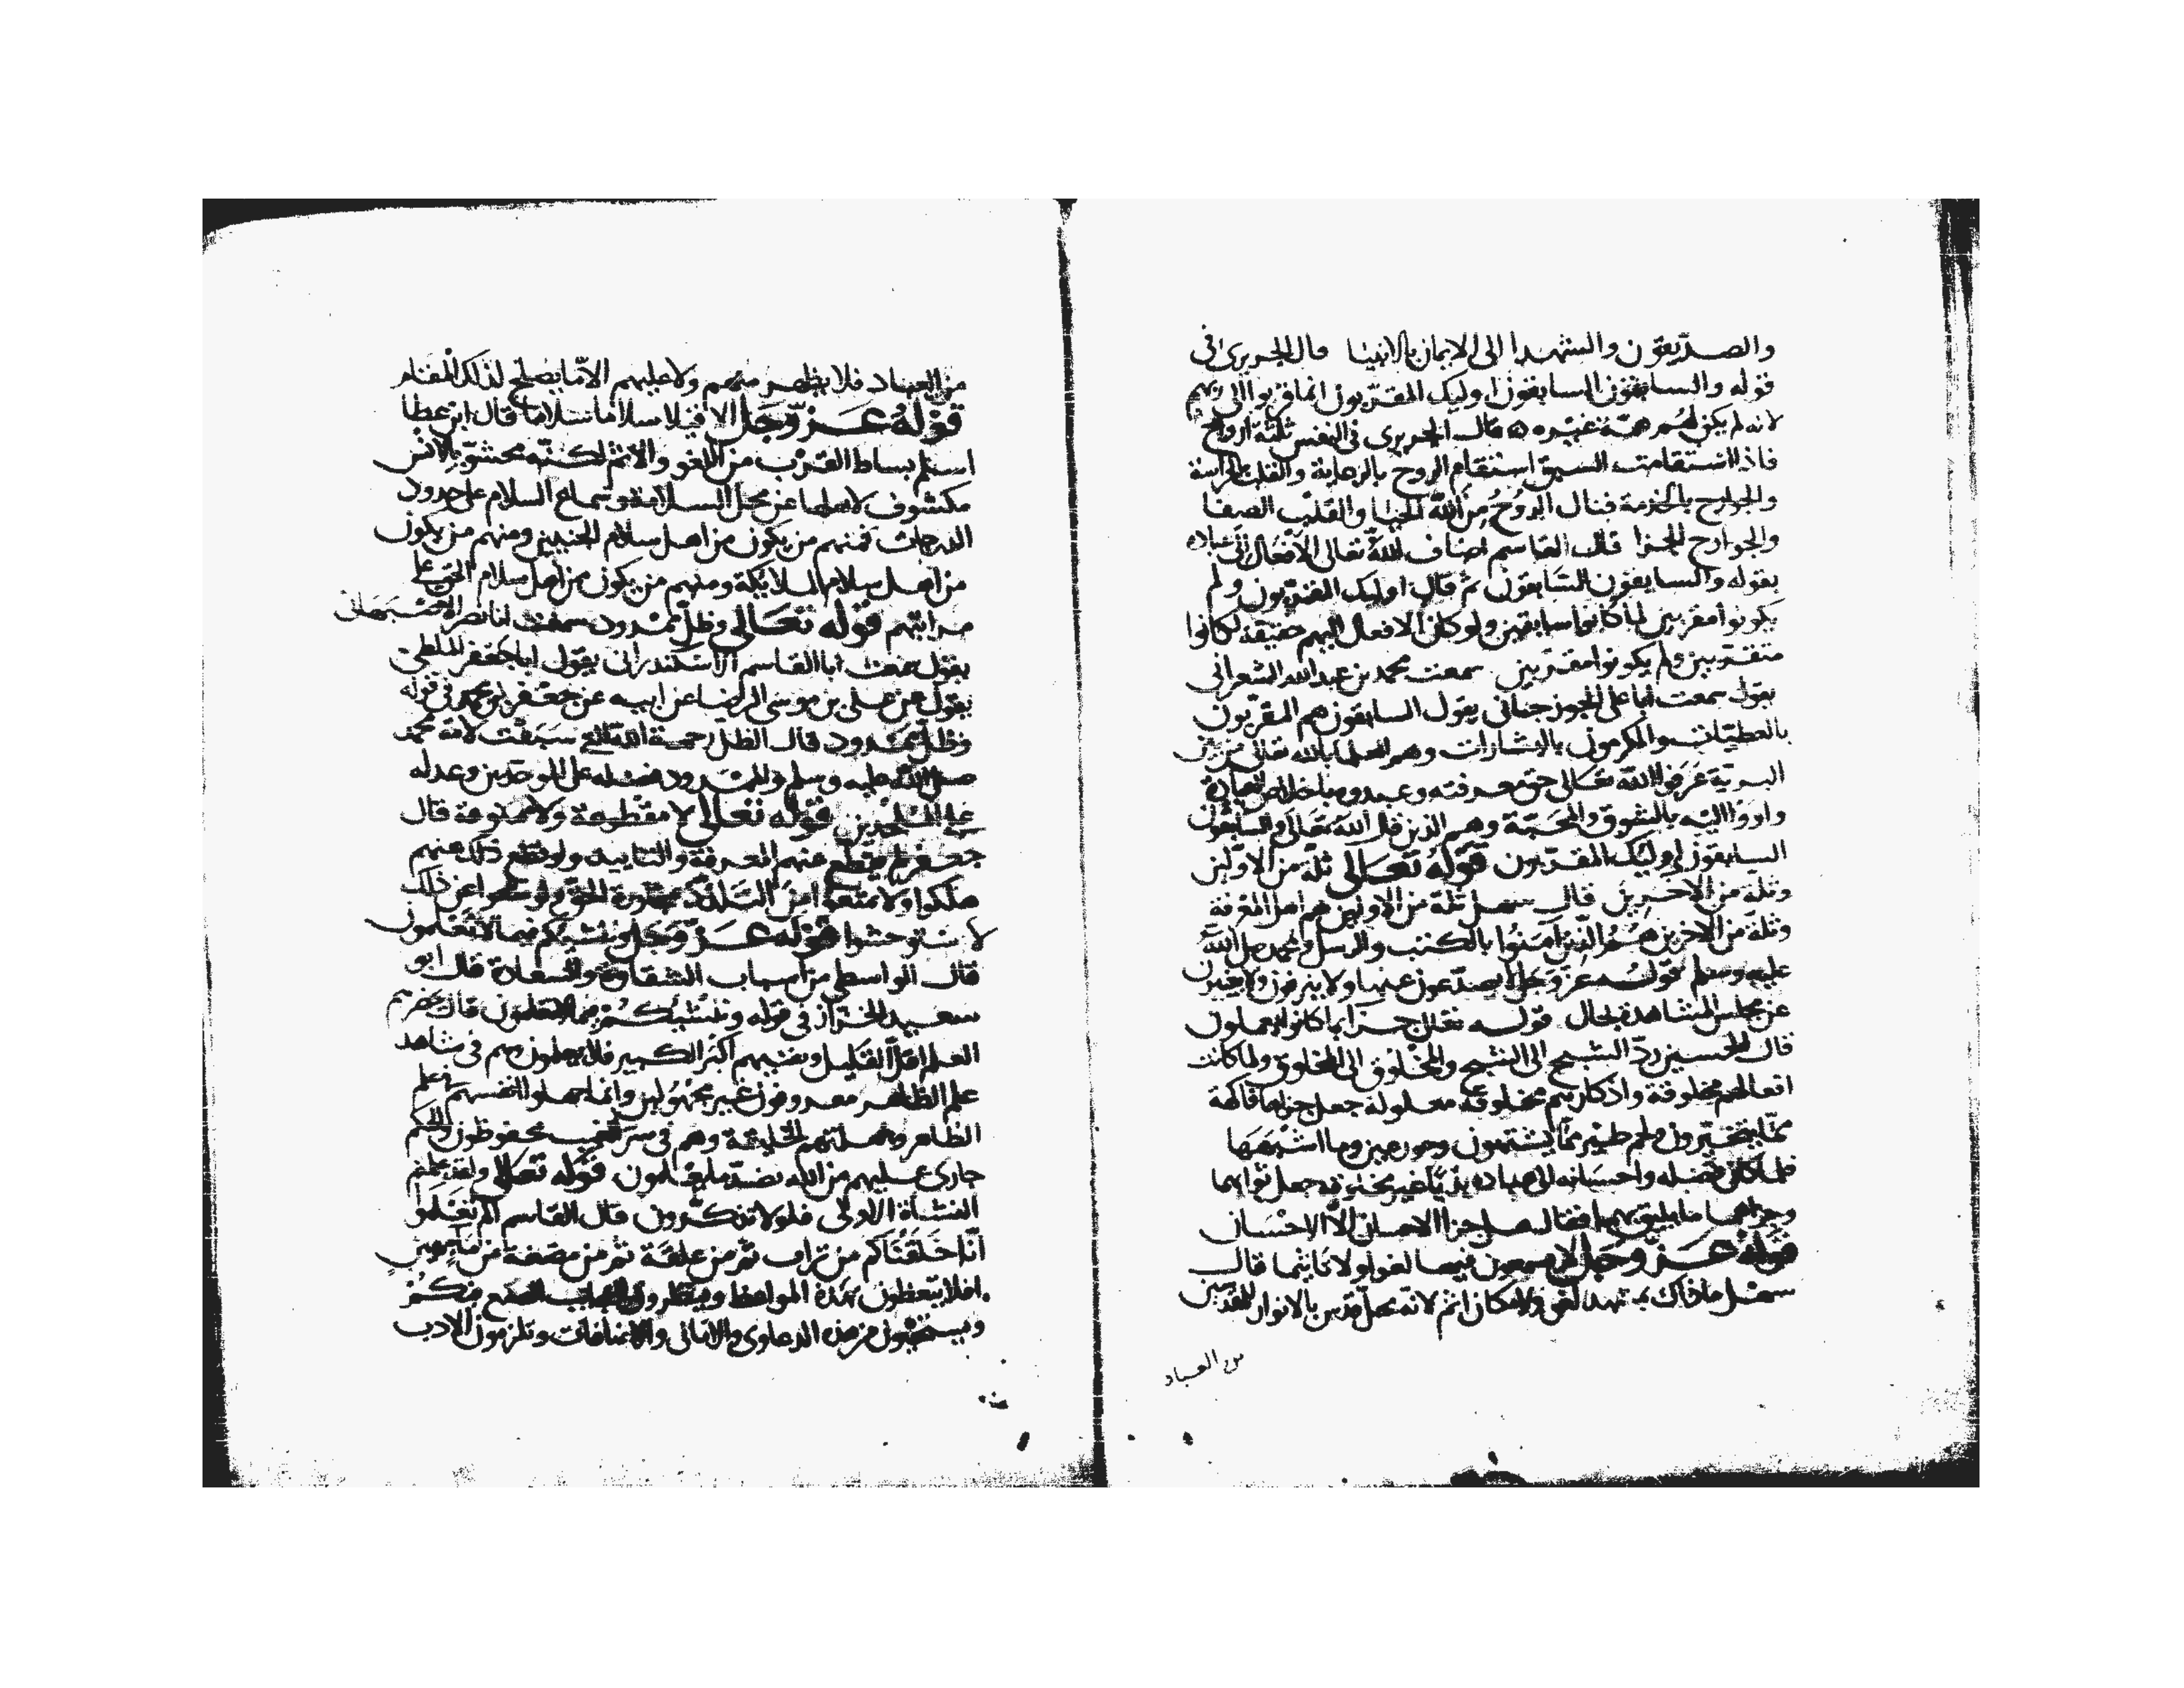 والصديقون والشهدا الى الايمان بالانبيا قال الجريرى فى
قوله والسابقون السابقون اوليك المقربون انما قربوا الى ربهم
لانه لم يكن لهم همة غيره قال الجريرى فى النفس ثلثة ارواح
فاذا استقامت السبق استقام الروح بالرعاية والقلب بالحراسة
والجوارح بالخدمة فنال الروح من الله الحيا والقلب الصفا
والجوارح الجزا قال القاسم اضاف الله تعالى الافعال الى عباده
بقوله والسابقون السابقون ثم قال اوليك المقربون ولم
يكونوا مقربين لما كانوا سابقين ولو كان الافعال اليهم حقيقة لكانوا
متقربين ولم يكونوا مقربين سمعت محمد بن عبدالله الشعرانى
يقول سمعت ابا على الجوزجانى يقول السابقون هم المقربون
بالعطيات والمكرمون بالبشارات وهم العلما بالله تعالى من بين
البرية عرفوا الله تعالى حق معرفته وعبدوه باخلاص العبادة
واووا اليه بالشوق والمحبة وهم الذين قال الله تعالى والسابقون
السابقون اوليك المقربون قوله تعالى ثلة من الاولين
وثلة من الاخرين قال سهل ثلة من الاولين هم اهل المعرفة
وثلة من الاخرين هم الذين امنوا بالكتب والرسل ومحمد صلى الله
عليه وسلم قوله عز وجل لا يصدعون عنها ولا ينزفون ولا يغيبون
عن مجلس المشاهدة بحال قوله تعالى جزا بما كانوا يعملون
قال الحسين ردّ الشبح الى الشبح والمخلوق الى المخلوق ولما كانت
افعالهم مخلوقة واذكارهم مخلوقة معلولة جعل جزاها فاكهة
مما يتخيرون ولحم طير مما يشتهون وحور عين وما اشبهها
فلما كان فضله واحسانه الى عباده بديا غير مخلوقه جعل ثوابهما
وجزاهما ما يليق بهما فقال هل جزا الاحسان الا الاحسان
قوله عز وجل لا يسمعون فيها لغوا ولا تاثيما قال
سهل ما ذاك بمشهد لغو ولا مكان اثم لانه محل قدس بالانوار للمقدسين
من العباد
من العباد فلا يظهر منهم ولا عليهم الا ما يصلح لذلك المقام
قوله عز وجل الا قيلا سلاما سلاما قال ابن عطا
اسلم بساط القرب من اللغو والاثم لكنه محشو بالانس
مكشوف لاهلها عن محل السلامة وسماع السلام على حدود
الدرجات فمنهم من يكون من اهل سلام الجنبين ومنهم من يكون
من اهل سلام الملايكة ومنهم من يكون من اهل سلام الحق على
مراتبهم قوله تعالى وظل ممدود سمعت ابا نصر الاصبهانى
يقول سمعت ابا القاسم الاسكندرانى يقول ابا جعفر الملطى
يقول عن على بن موسى الرضا عن ابيه عن جعفر بن محمد فى قوله
وظل ممدود قال الظل رحمة الله التى سبقت لامة محمد
صلى الله عليه وسلم والممدود فضله على الموحدين وعدله
على الملحدين قوله تعالى لا مقطوعة ولا ممنوعة قال
جعفر لم يقطع عنهم المعرفة والتاييد ولو قطع ذلك عنهم
هلكوا ولا منعوا من التلذذ بمجاورة الحق ولو منعوا عن ذلك
لاستوحشوا قوله عز وجل وننشيكم فيما لا تعلمون
قال الواسطى من اسباب الشقاوة والسعادة قال ابو
سعيد الخراز فى قوله وننشيكم فيما لا تعلمون قال
العلم اقل القليل وغيبهم اكثر الكثير فلا يعلمون وهم فى شاهد
علم الظاهر معروفون غير مجهولين وانما جهلوا انفسهم فى علم
الظاهر وجهلتهم الخليقة وهم فى سر الغيب محفوظون والحكم
جارى عليهم من الله بضد ما يعملون قوله تعالى ولقد علمتم
النشاة الاولى فلولا تذكرون قال القاسم الم تعلموا
انا خلقناكم من تراب ثم من علقة ثم من مضغة من ما مهين
افلا يتعظون بهذه المواعظ وينظرون الى عجايب الصنع فيكم
ويستحيون من هذه الدعاوى والامانى والاضافات وتلزمون الادب